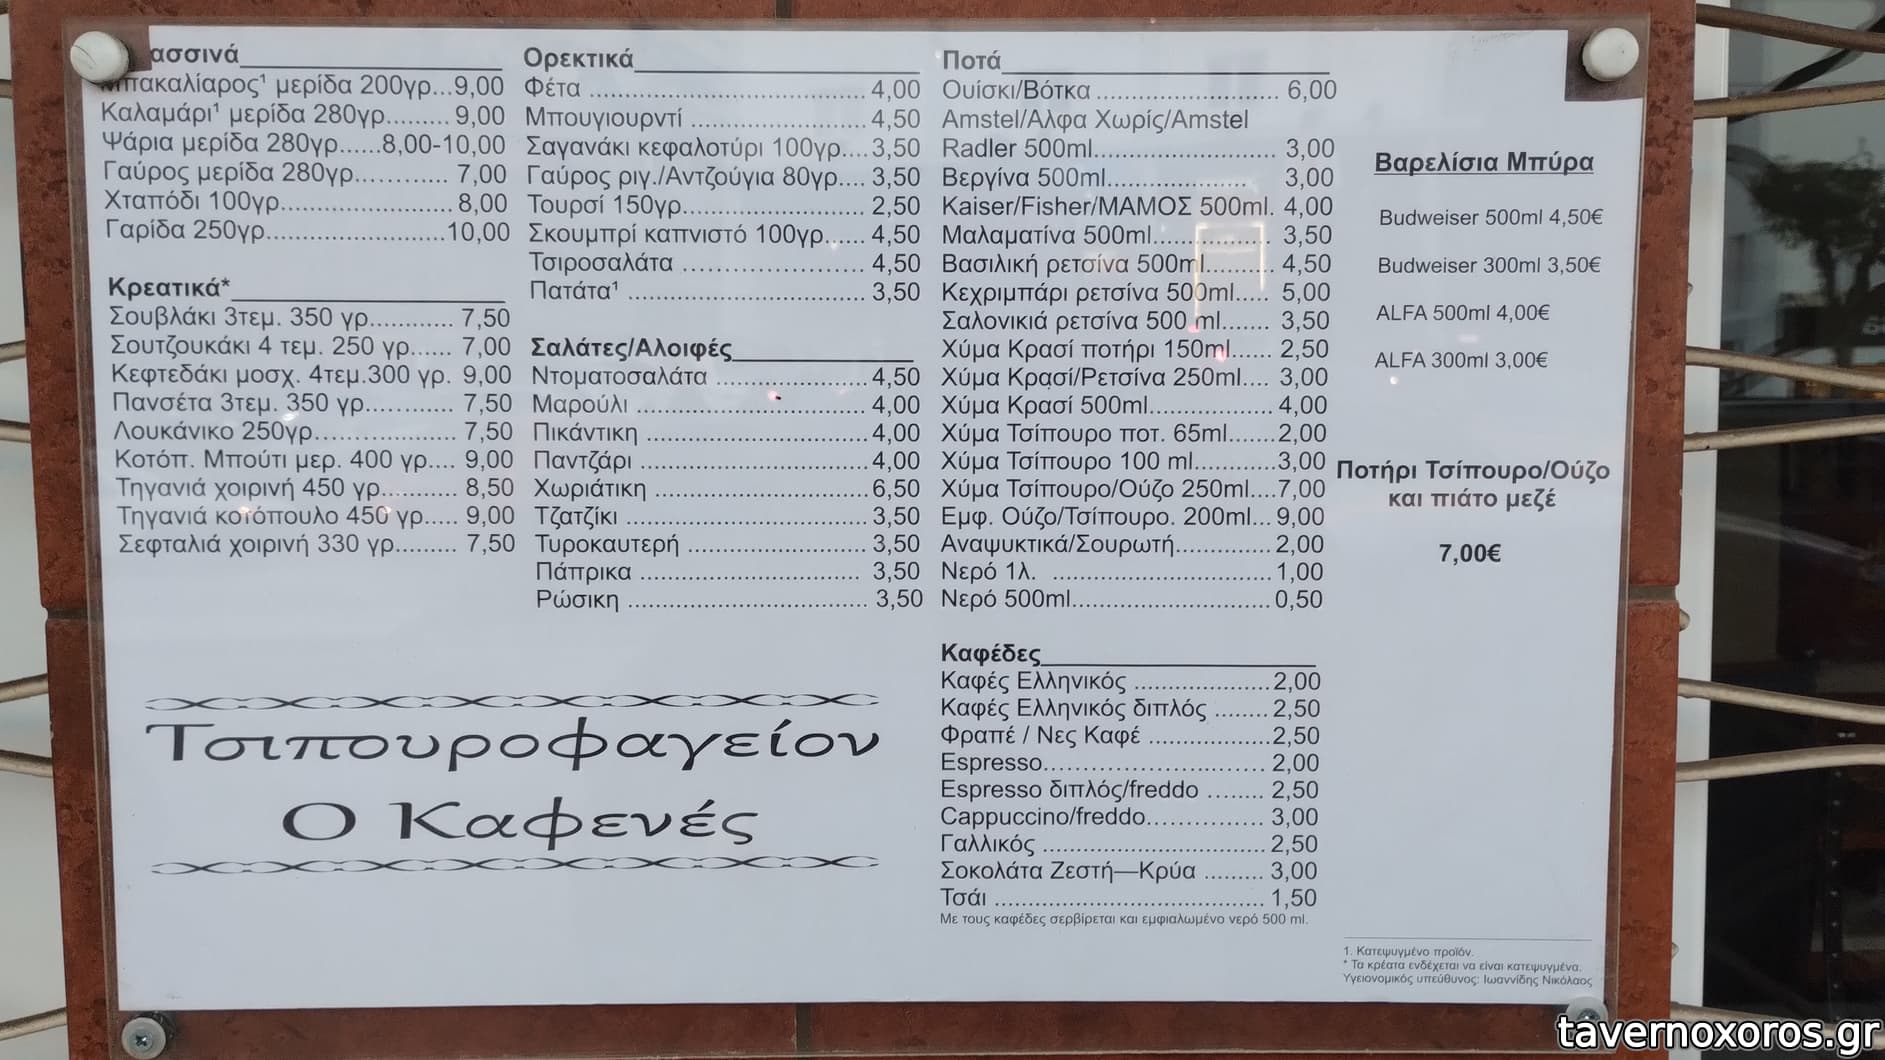 ασσινά
Μπακαλίαρος¹ μερίδα 200γρ...9,00
Καλαμάρι¹ μερίδα 280γρ......... 9,00
Ψάρια μερίδα 280γρ......8,00-10,00
Γαύρος μερίδα 280γρ............ 7,00
Χταπόδι 100γρ......................... 8,00
Γαρίδα 250γρ..........................10,00
Κρεατικά*
Σουβλάκι 3τεμ. 350 γρ............ 7,50
Σουτζουκάκι 4 τεμ. 250 γρ...... 7,00
Κεφτεδάκι μοσχ. 4τεμ.300 γρ. 9,00
Πανσέτα 3τεμ. 350 γρ............. 7,50
Λουκάνικο 250γρ..................... 7,50
Κοτόπ. Μπούτι μερ. 400 γρ.... 9,00
Τηγανιά χοιρινή 450 γρ........... 8,50
Τηγανιά κοτόπουλο 450 γρ..... 9,00
Σεφταλιά χοιρινή 330 γρ......... 7,50
Ορεκτικά
Φέτα ........................................ 4,00
Μπουγιουρντί ......................... 4,50
Σαγανάκι κεφαλοτύρι 100γρ....3,50
Γαύρος ριγ./Αντζούγια 80γρ.... 3,50
Τουρσί 150γρ........................... 2,50
Σκουμπρί καπνιστό 100γρ...... 4,50
Τσιροσαλάτα ........................... 4,50
Πατάτα¹ ................................... 3,50
Σαλάτες/Αλοιφές
Ντοματοσαλάτα ...................... 4,50
Μαρούλι .................................. 4,00
Πικάντικη .................................4,00
Παντζάρι ..................................4,00
Χωριάτικη ................................6,50
Τζατζίκι .................................... 3,50
Τυροκαυτερή ........................... 3,50
Πάπρικα ................................. 3,50
Ρώσικη .................................... 3,50
Ποτά
Ουίσκι/Βότκα ........................... 6,00
Amstel/Αλφα Χωρίς/Amstel
Radler 500ml........................... 3,00
Βεργίνα 500ml..................... 3,00
Kaiser/Fisher/ΜΑΜΟΣ 500ml. 4,00
Μαλαματίνα 500ml................. 3,50
Βασιλική ρετσίνα 500ml.......... 4,50
Κεχριμπάρι ρετσίνα 500ml..... 5,00
Σαλονικιά ρετσίνα 500 ml....... 3,50
Χύμα Κρασί ποτήρι 150ml...... 2,50
Χύμα Κρασί/Ρετσίνα 250ml.... 3,00
Χύμα Κρασί 500ml.................. 4,00
Χύμα Τσίπουρο ποτ. 65ml.......2,00
Χύμα Τσίπουρο 100 ml............3,00
Χύμα Τσίπουρο/Ούζο 250ml....7,00
Εμφ. Ούζο/Τσίπουρο. 200ml... 9,00
Αναψυκτικά/Σουρωτή.............. 2,00
Νερό 1λ. ................................1,00
Νερό 500ml............................. 0,50
Καφέδες
Καφές Ελληνικός ....................2,00
Καφές Ελληνικός διπλός ........ 2,50
Φραπέ / Νες Καφέ ..................2,50
Espresso................................. 2,00
Espresso διπλός/freddo ........ 2,50
Cappuccino/freddo................. 3,00
Γαλλικός ................................. 2,50
Σοκολάτα Ζεστή—Κρύα ......... 3,00
Τσάι ........................................ 1,50
Με τους καφέδες σερβίρεται και εμφιαλωμένο νερό 500 ml.
Βαρελίσια Μπύρα
Budweiser 500ml 4,50€
Budweiser 300ml 3,50€
ALFA 500ml 4,00€
ALFA 300ml 3,00€
Ποτήρι Τσίπουρο/Ούζο
και πιάτο μεζέ
7,00€
Τσιπουροφαγείον
Ο Καφενές
1. Κατεψυγμένο προϊόν.
* Τα κρέατα ενδέχεται να είναι κατεψυγμένα.
Υγειονομικός υπεύθυνος: Ιωαννίδης Νικόλαος
tavernoxoros.gr